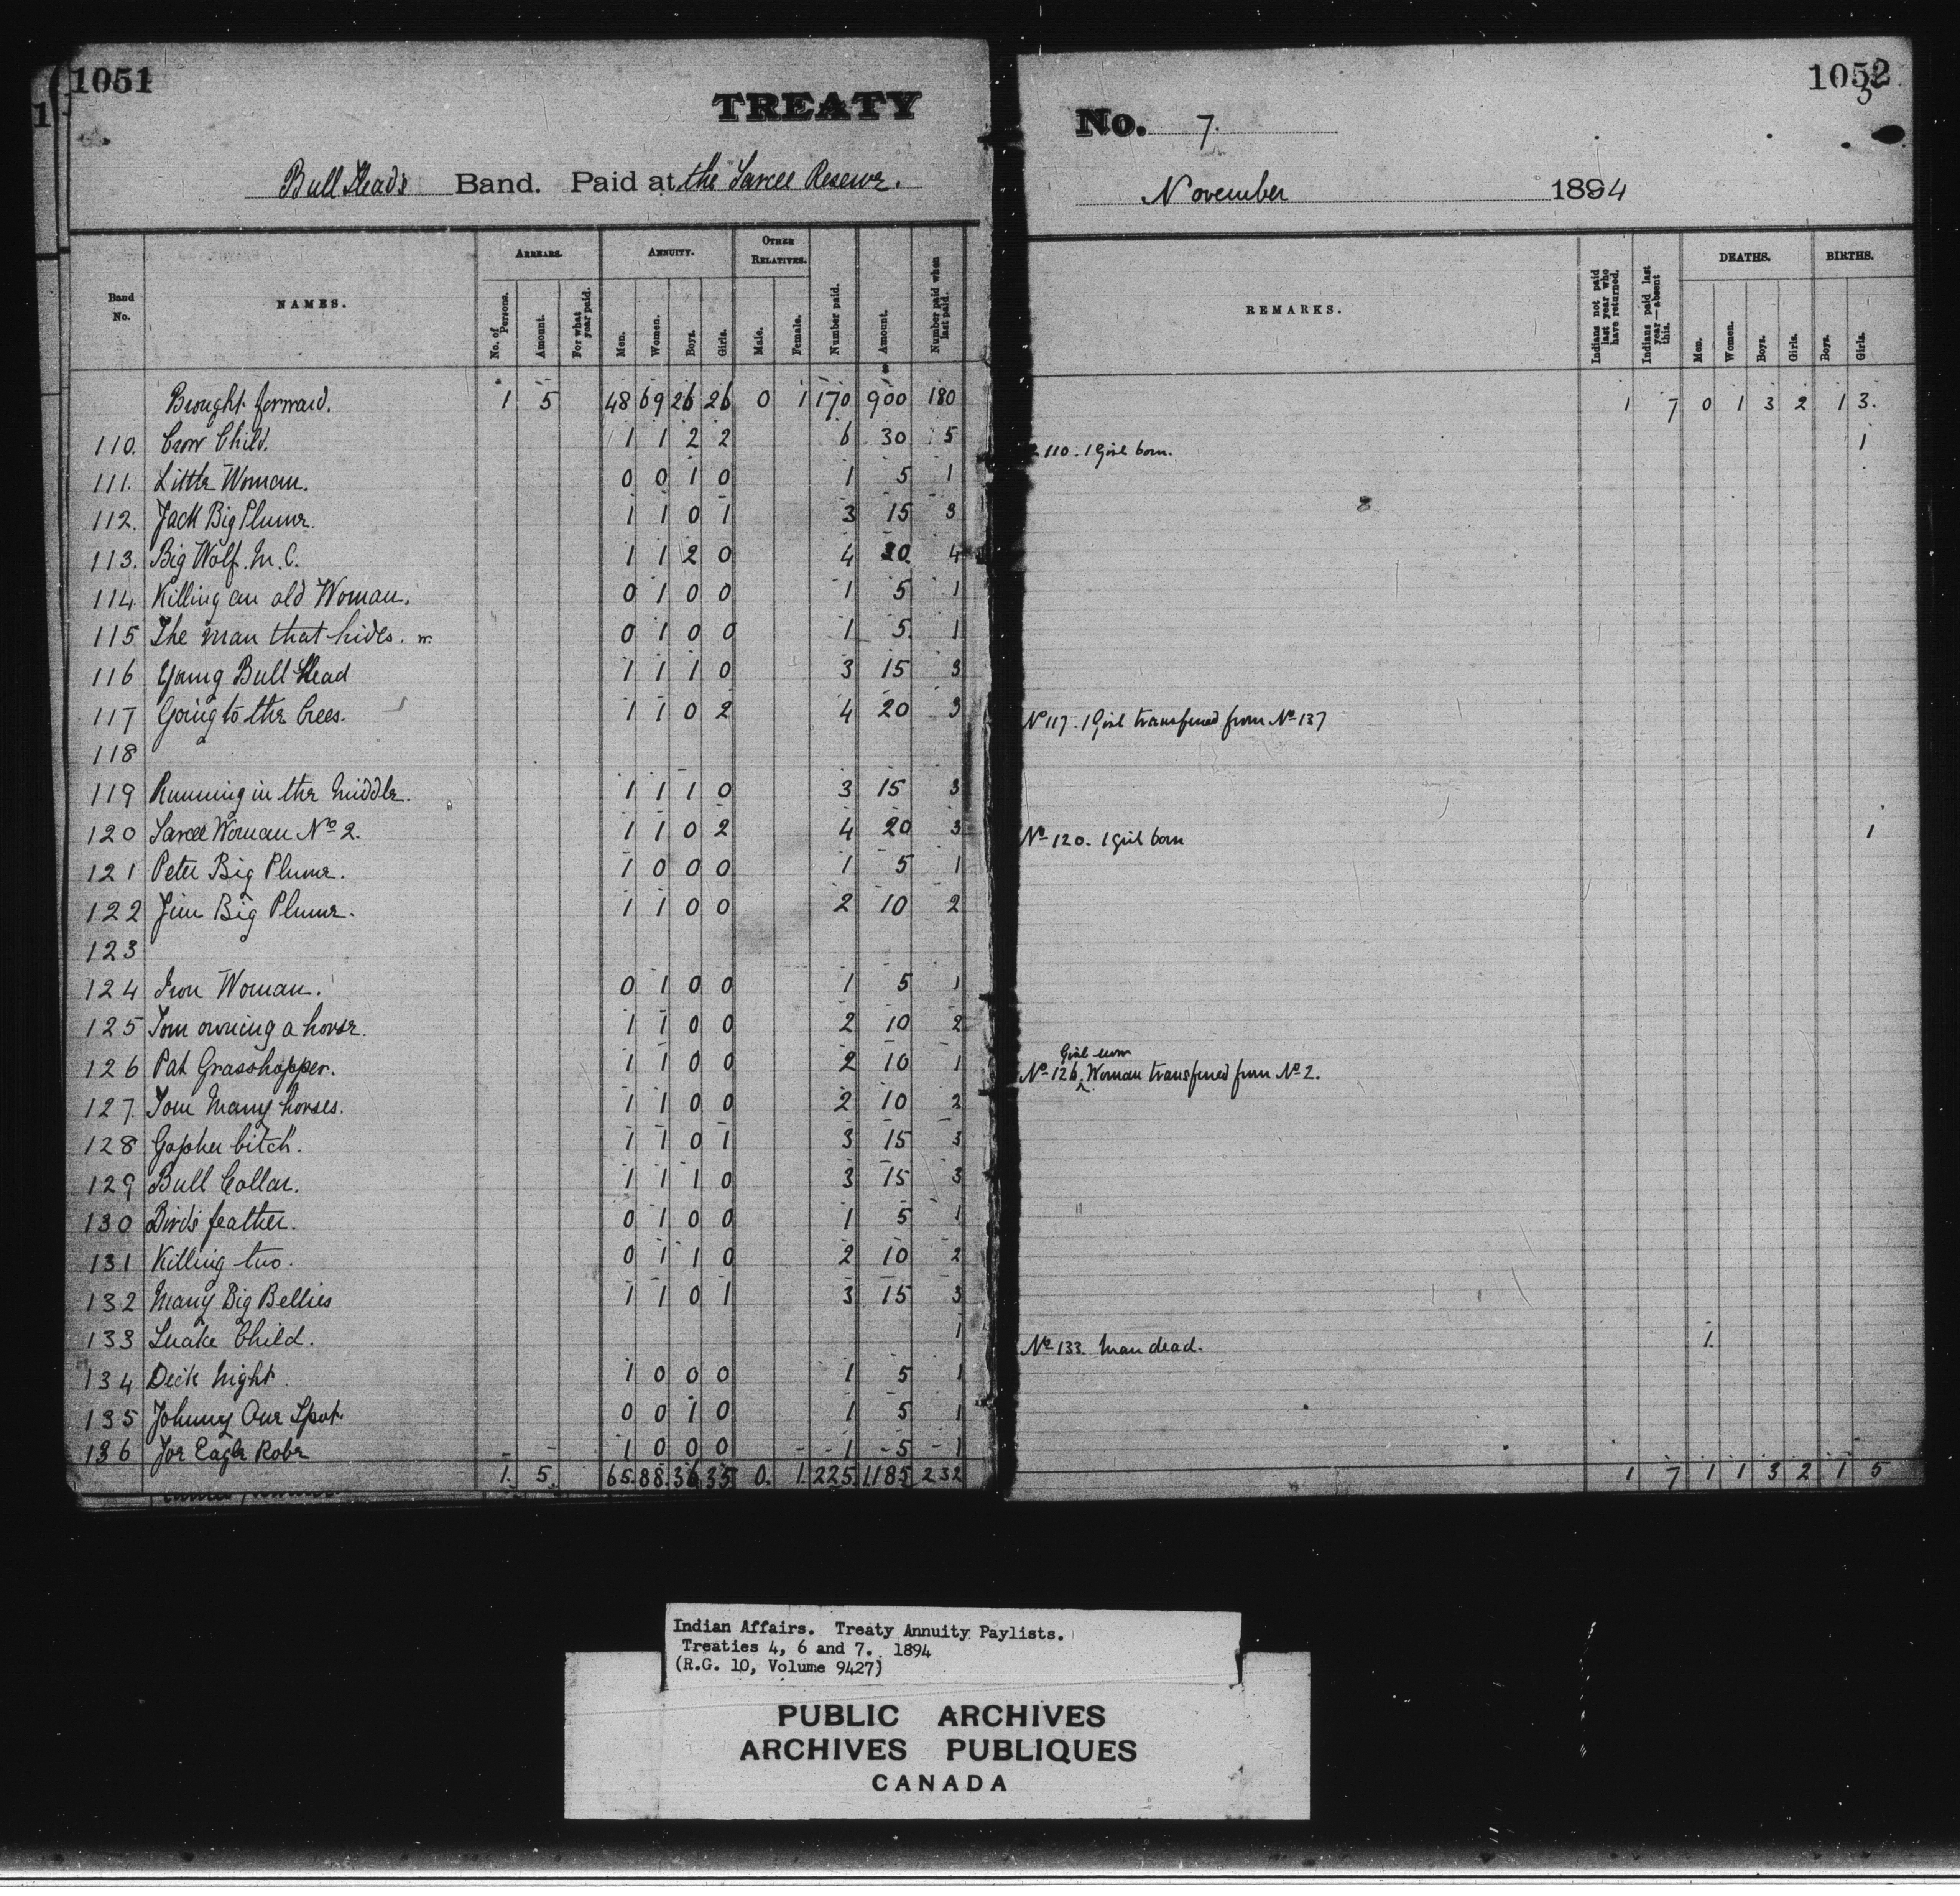 1051
TREATY
Bull Head's Band. Paid at the Sarcee Reserve.
Band No. NAMES. ARREARS. ANNUITY. OTHER RELATIVES.
No. of Persons. Amount. For what year paid. Men. Women. Boys. Girls. Male. Female. Number paid. Amount. Number paid when last paid.
Brought forward. 1 5 48 69 26 26 0 1 170 900 180
110. Crow Child. 1 1 2 2 6 30 5
111. Little Woman. 0 0 1 0 1 5 1
112. Jack Big Plume. 1 1 0 1 3 15 3
113. Big Wolf. M. C. 1 1 2 0 4 20 4
114 Killing an old Woman. 0 1 0 0 1 5 1
115 The man that hides. w. 0 1 0 0 1 5 1
116 Young Bull Head 1 1 1 0 3 15 3
117 Going to the Crees. 1 1 0 2 4 20 3
118
119 Running in the Middle. 1 1 1 0 3 15 3
120 Sarcee Woman No 2. 1 1 0 2 4 20 3
121 Peter Big Plume. 1 0 0 0 1 5 1
122 Jim Big Plume. 1 1 0 0 2 10 2
123
124 Iron Woman. 0 1 0 0 1 5 1
125 Tom owning a horse. 1 1 0 0 2 10 2
126 Pat Grasshopper. 1 1 0 0 2 10 1
127 Tom Many horses. 1 1 0 0 2 10 2
128 Gopher bitch. 1 1 0 1 3 15 3
129 Bull Collar. 1 1 1 0 3 15 3
130 Bird's feather. 0 1 0 0 1 5 1
131 Killing two. 0 1 1 0 2 10 2
132 Many Big Bellies 1 1 0 1 3 15 3
133 Snake Child. 1
134 Dick Night. 1 0 0 0 1 5 1
135 Johnny One Spot 0 0 1 0 1 5 1
136 Joe Eagle Robe 1 0 0 0 1 5 1
1. 5. 65. 88. 36 35 0. 1. 225 1185 232
1052
No. 7.
November 1894
REMARKS. Indians not paid last year who have returned. Indians paid last year—absent this. DEATHS. BIRTHS.
Men. Women. Boys. Girls. Boys. Girls.
1 7 0 1 3 2 1 3.
110. 1 Girl born. 1
No 117. 1 Girl transferred from No 137
No 120. 1 girl born 1
Girl now
No 126. Woman transferred from No 2.
No 133. Man dead. 1.
1 7 1 1 3 2 1 5
Indian Affairs. Treaty Annuity Paylists.
Treaties 4, 6 and 7. 1894
(R.G. 10, Volume 9427)
PUBLIC ARCHIVES
ARCHIVES PUBLIQUES
CANADA